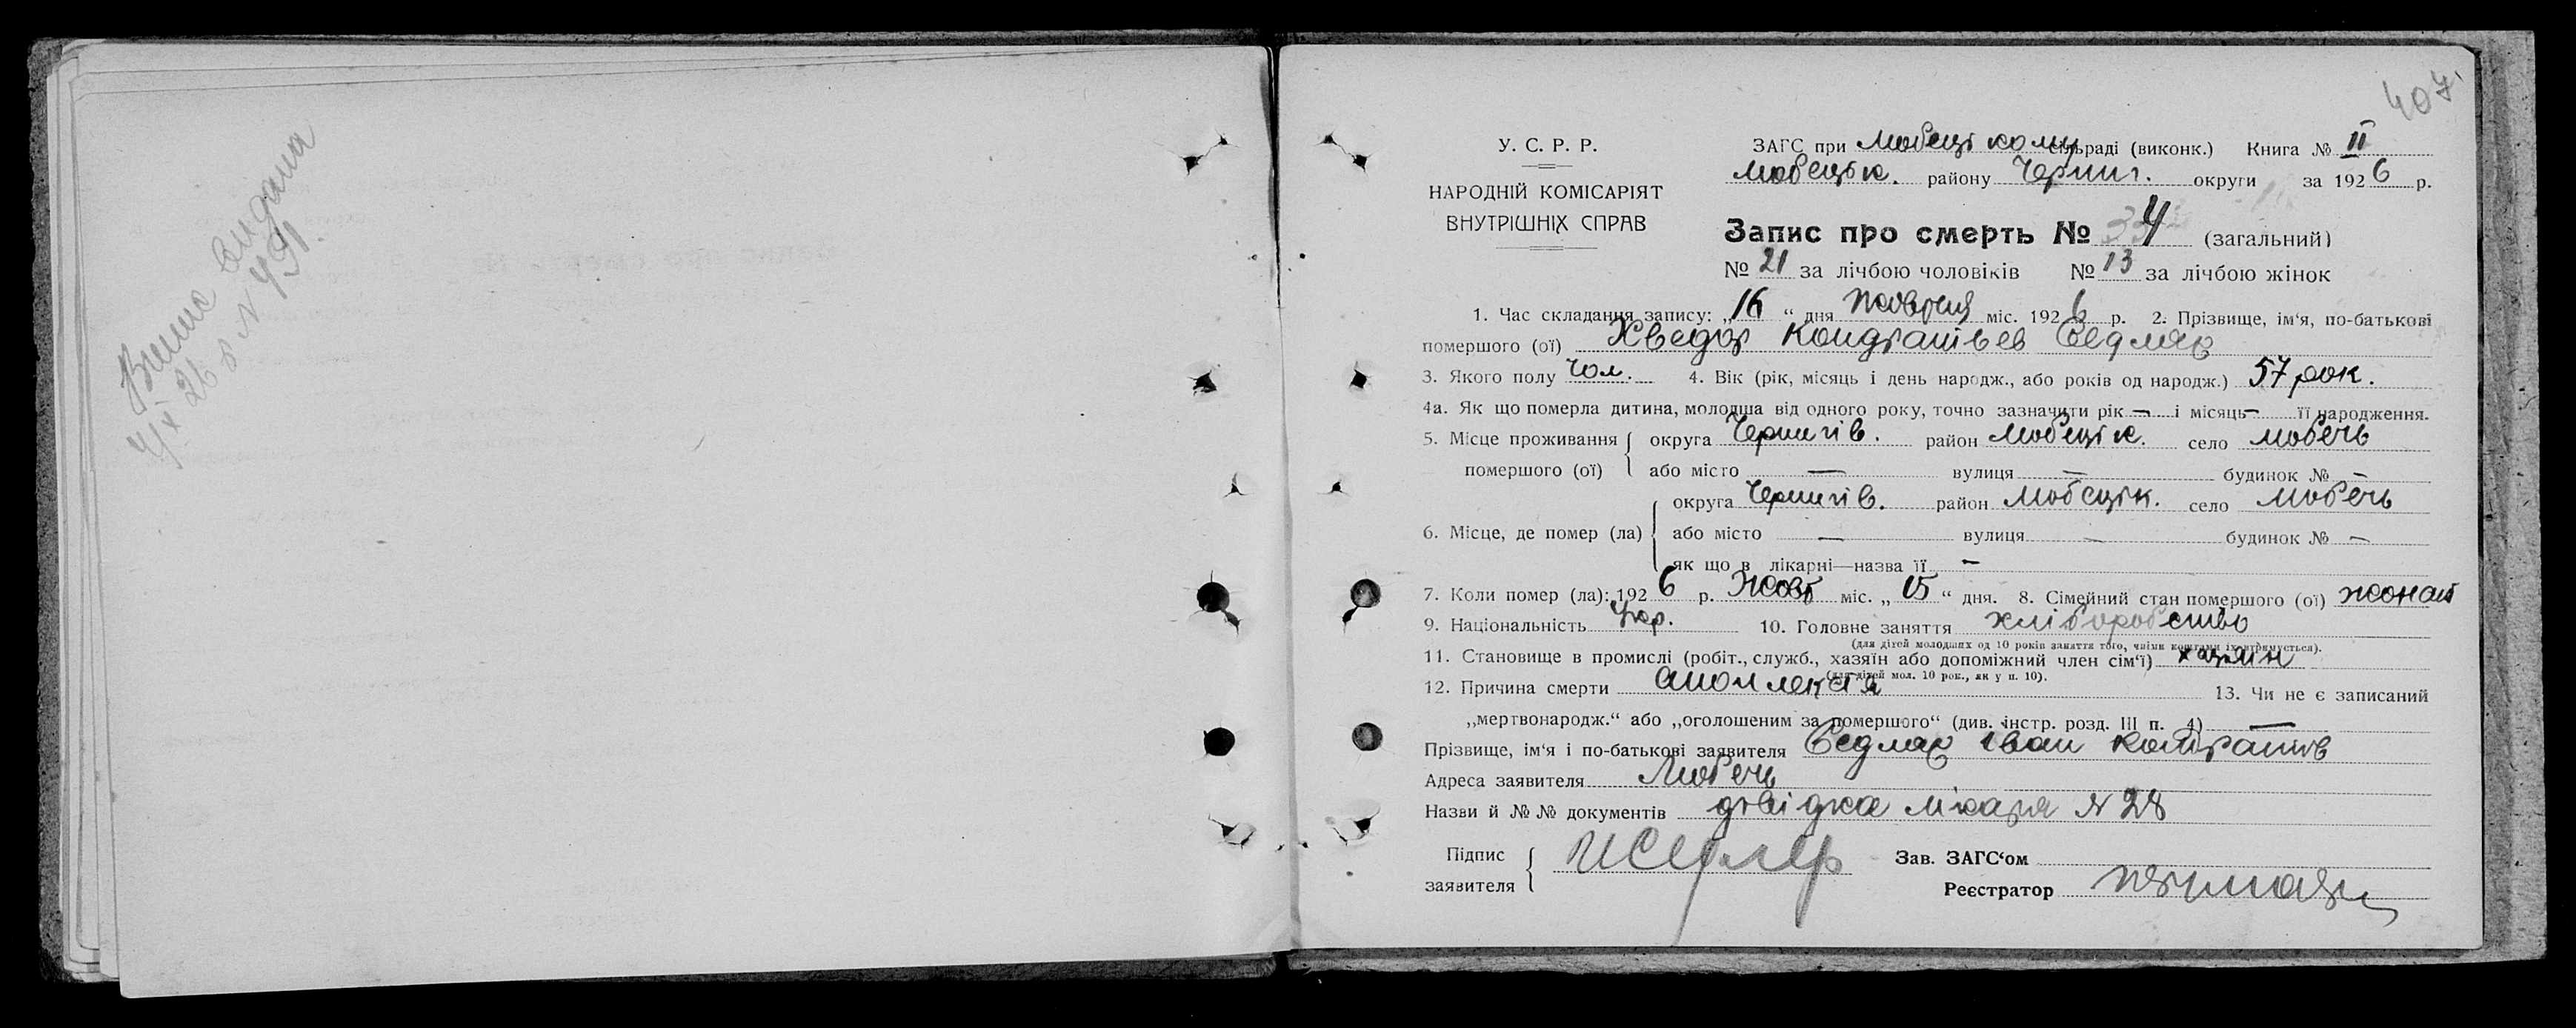 Виписка видана
4/XI 26 р N 491
407
У. С. Р. Р.
НАРОДНІЙ КОМІСАРІЯТ
ВНУТРІШНІХ СПРАВ
ЗАГС при Любецькому сільраді (виконк.) Книга № II
Любецьк. району Черниг. округи за 1926 р.
Запис про смерть № 34 (загальний)
№ 21 за лічбою чоловіків № 13 за лічбою жінок
1. Час складання запису: „16“ дня Жовтня міс. 1926 р. 2. Прізвище, ім‘я, по-батькові
помершого (ої) Хведор Кондратьев Седляр
3. Якого полу Чол. 4. Вік (рік, місяць і день народж., або років од народж.) 57 рок.
4а. Як що померла дитина, молодша від одного року, точно зазначити рік — і місяць — її народження.
5. Місце проживання помершого (ої) округа Чернигів. район Любецьк. село Любечь
або місто — вулиця — будинок № —
6. Місце, де помер (ла) округа Чернигів. район Любецьк. село Любечь
або місто — вулиця — будинок № —
як що в лікарні—назва її —
7. Коли помер (ла): 1926 р. Жовт міс. „15“ дня. 8. Сімейний стан помершого (ої) жонат
9. Національність Укр. 10. Головне заняття хліборобство
(для дітей молодших од 10 років заняття того, чиїми коштами їх утримується).
11. Становище в промислі (робіт., служб., хазяїн або допоміжний член сім‘ї) хазяин
(для дітей мол. 10 рок., як у п. 10).
12. Причина смерти апоплексія 13. Чи не є записаний
„мертвонародж.“ або „оголошеним за помершого“ (див. інстр. розд. III п. 4) —
Прізвище, ім‘я і по-батькові заявителя Седляр Іван Кондратов
Адреса заявителя Любечь
Назви й №№ документів довідка лікаря № 28
Підпис
заявителя
Зав. ЗАГС‘ом
Реєстратор